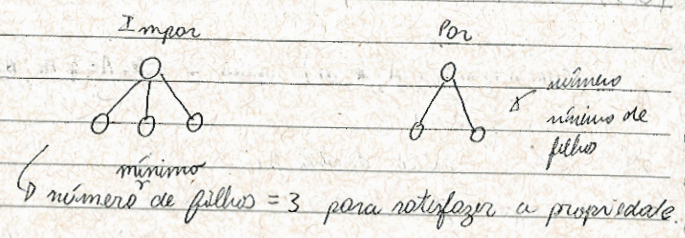 Impar
Par
número
mínimo de
filhos
mínimo
número de filhos = 3 para satisfazer a propriedade.